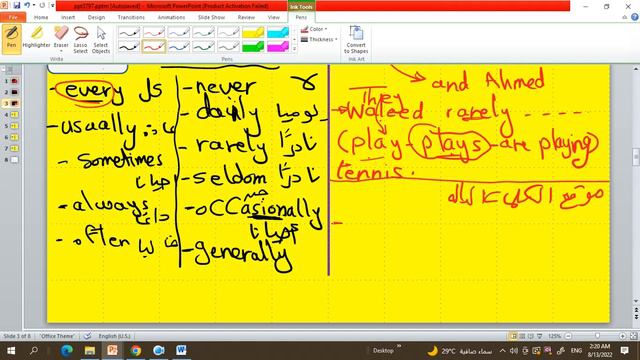 ppt3797.pptm [Autosaved] - Microsoft PowerPoint (Product Activation Failed)
Ink Tools
Pens
Pen
Highlighter
Eraser
Lasso Select
Select Objects
Write
Pens
Color
Thickness
Convert to Shapes
Ink Art
- every كل
- usually عادة
- sometimes
احيانا
- always دائما
- often غالبا
- never X
- daily يوميا
- rarely نادرًا
- seldom نادرًا
- occasionally
احيانا
- generally
and Ahmed
They
Waleed rarely ----
(play - plays - are playing)
tennis.
Slide 3 of 8
"Office Theme"
English (U.S.)
125%
Desktop
29°C سماء صافية
ENG
2:20 AM
8/13/2022